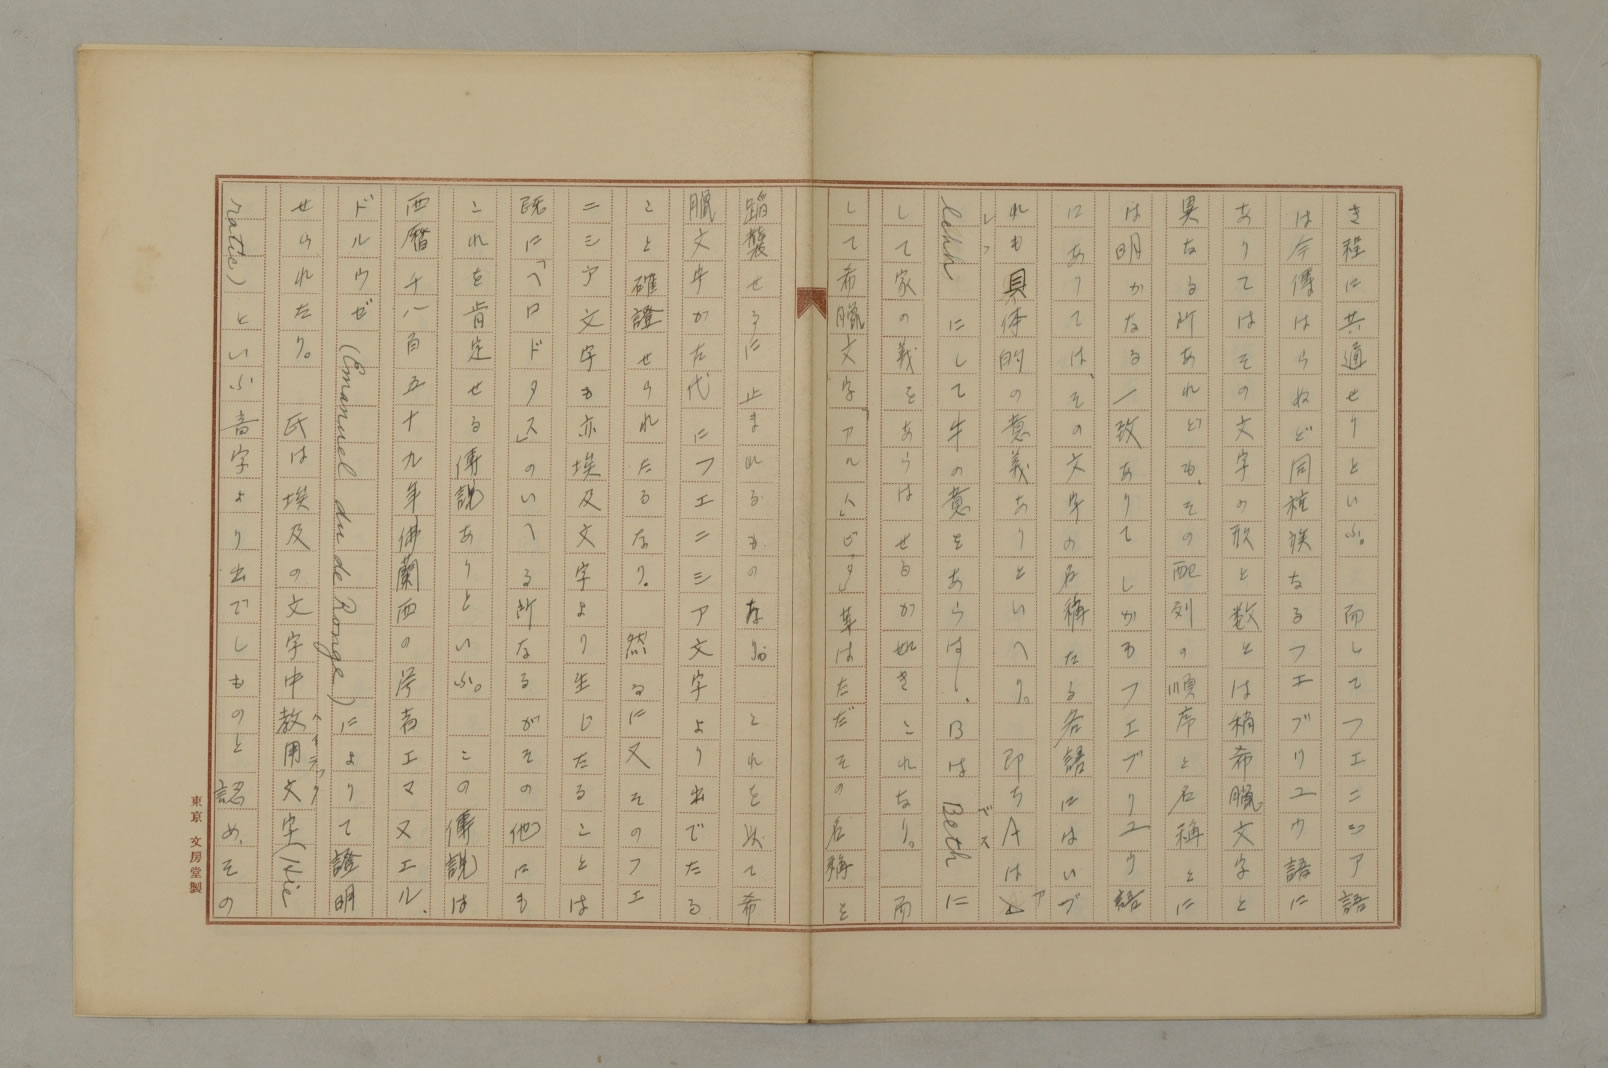 き程に共通せりといふ。　而してフエニシア語
は今傳はらねど同種族なるフエブリユウ語に
ありてはその文字の形と数とは稍希臘文字と
異なる所あれども、その配列の順序と名稱とに
は明かなる一致ありてしかもフエブリユウ語
にありては、その文字の名稱たる各語にはいづ
れも具体的の意義ありといへり。　即ちAは
lehh にして牛の意をあらはし、Bは Beth に
して家の義をあらはせるが如き これなり。　而
して希臘文字「アルハ」「ビタ」等はただその名稱を
蹈襲せるに止まれるものなり。　これを以て希
臘文字が古代にフエニシア文字より出でたる
こと確證せられたるなり。　然るに又そのフエ
ニシア文字も亦埃及文字より生じたることは
既に「ヘロドタス」のいへる所なるがその他にも
これを肯定せる傳説ありといふ。　この傳説は
西暦千八百五十九年佛蘭西の学者エマヌエル、
ドルウゼ (Emanuel du de Rouge) によりて證明
せられたり。　氏は埃及の文字中教用文字 (Hie
ratic) といふ音字より出でしものと認め、その
東京 文房堂製